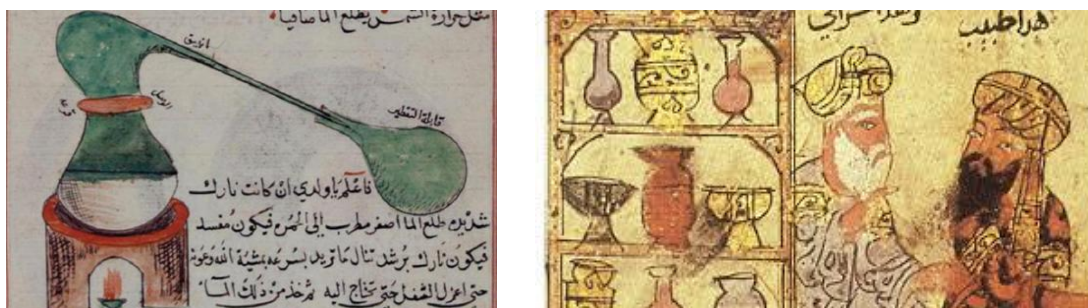 مثل حرارة الشمس يطلع الما صافيا
انبيق
قرعة
قابلة التقطير
فاعلم يا ولدي ان كانت نارك
شديده طلع الما اصفر مطرب الى الحمره فيكون مفسد
فيكون نارك برشد تنال ما تريد بسرعه بمشية الله وعونه
حتى اعزل الثفل حتى تحتاج اليه ثم خذ من ذلك الما
هذا طبيب
وهذا شرابي